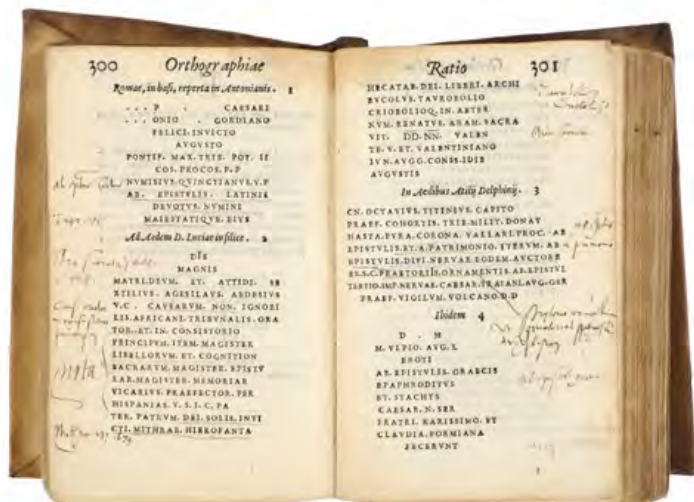 300 Orthographiae
Romae, in basi, reperta in Antonianis. 1
...P . CAESARI
...ONIO . GORDIANO
FELICI. INVICTO
AVGVSTO
PONTIF. MAX. TRIB. POT. II
COS. PROCOS. P. P
NVMISIVS. QVINCTIANVS. V. P
AB. EPISTVLIS. LATINIS
DEVOTVS. NVMINI
MAIESTATIQVE. EIVS
Ad Aedem D. Luciae in silice. 2
DIS
MAGNIS
MATRI. DEVM. ET. ATTIDI. SE
XTILIVS. AGESILAVS. AEDESIVS
V. C. CAVSARVM. NON. IGNOBI
LIS. AFRICANI. TRIBVNALIS. ORA
TOR. ET. IN. CONSISTORIO
PRINCIPVM. ITEM. MAGISTER
LIBELLORVM. ET. COGNITION
SACRARVM. MAGISTER. EPISTV
LAR. MAGISTER. MEMORIAE
VICARIVS. PRAEFECTOR. PER
HISPANIAS. V. S. I. C. PA
TER. PATRVM. DEI. SOLIS. INVI
CTI. MITHRAE. HIEROFANTA
nota
Ratio 301
HECATAE. DEI. LIBERI. ARCHI
BVCOLVS. TAVROBOLIO
CRIOBOLIOQ. IN. AETER
NVM. RENATVS. ARAM. SACRA
VIT. DD. NN. VALEN
TE. V. ET. VALENTINIANO
IVN. AVGG. CONSS. IDIB
AVGVSTIS
In Aedibus Atilij Delphinij. 3
CN. OCTAVIVS. TITINIVS. CAPITO
PRAEF. COHORTIS. TRIB. MILIT. DONAT
HASTA. PVRA. CORONA. VALLARI. PROC. AB
EPISTVLIS. ET. A. PATRIMONIO. ITERVM. AB
EPISTVLIS. DIVI. NERVAE. EODEM. AVCTORE
EX. S. C. PRAETORIIS. ORNAMENTIS. AB. EPISTVL
TERTIO. IMP. NERVAE. CAESAR. TRAIANI. AVG. GER
PRAEF. VIGILVM. VOLCANO. D. D
Ibidem 4
D . M
M. VLPIO. AVG. L
EROTI
AB. EPISTVLIS. GRAECIS
EPAPHRODITVS
ET. STACHYS
CAESAR. N. SER
FRATRI. KARISSIMO. ET
CLAVDIA. FORMIANA
FECERVNT